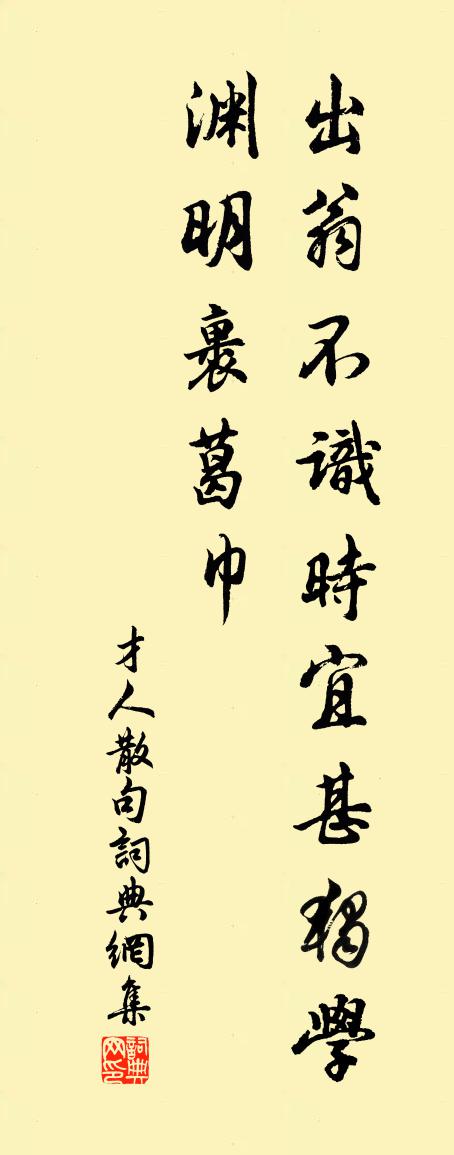 出翁不識時宜甚獨學
淵明裹葛巾
才人散句詞典網集
詞典网印